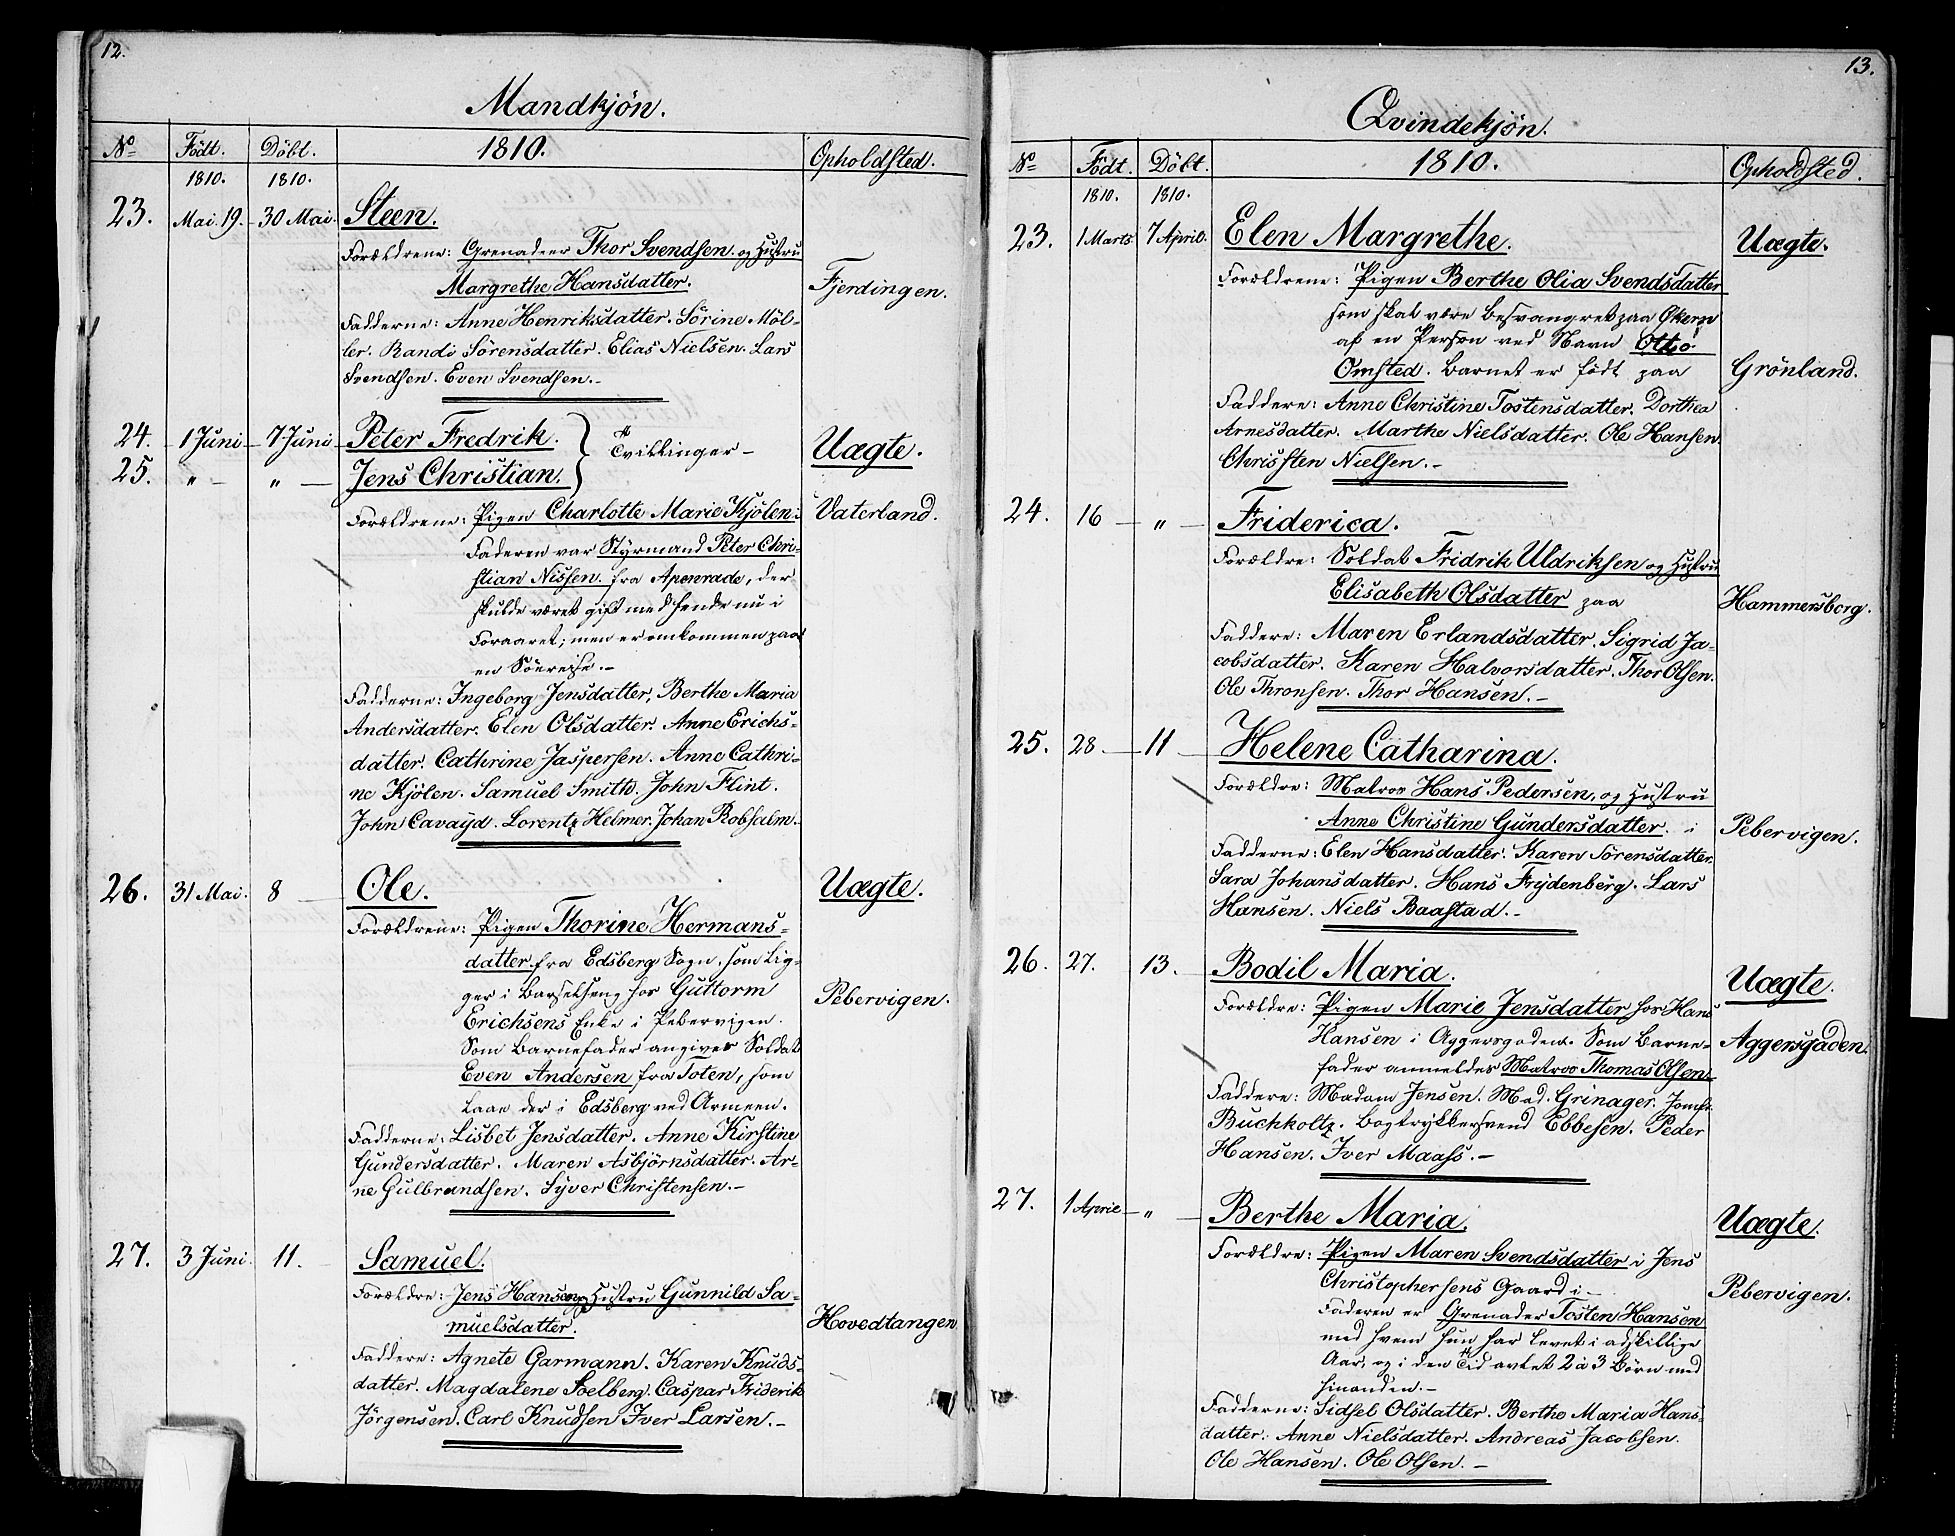 12.
Mandkjön.
No Födt. Döbt. 1810. Opholdsted.
1810. 1810.
23. Mai. 19. 30 Mai. Steen.
Forældrene: Grenadeer Thor Svendsen. og Hustru
Margrethe Hansdatter. Fjerdingen.
Fadderne: Anne Henriksdatter. Sörine Möl-
ler. Randi Sörensdatter. Elias Nielsen. Lars
Svendsen. Even Svendsen.-
24. 1 Juni 7 Juni Peter Fredrik. Tvillinger- Uægte.
25. " - " - Jens Christian.
Forældrene: Pigen Charlotte Marie Kjölen: Vaterland.
Faderen var Styrmand Peter Chri-
stian Nissen. fra Apenrade, der
skulde været gift med hende nu i
Foraaret; men er omkommen paa
en Söereise.-
Fadderne: Ingeborg Jensdatter, Berthe Maria
Andersdatter. Elen Olsdatter. Anne Erichs-
datter. Cathrine Jaspersen. Anne Cathri-
ne Kjölen. Samuel Smith. John Flint.
John Cavayd. Lorentz Helmer. Johan Robsalm.
26. 31 Mai. 8 Ole. Uægte.
Forældrene: Pigen Thorine Hermans-
datter fra Edsberg Sogn, som lig-
ger i Barselseng hos Guttorm Pebervigen.
Erichsens Enke i Pebervigen.
Som Barnefader angives Soldat
Even Andersen fra Toten, som
laae der i Edsberg ved Armeen.
Fadderne: Lisbet Jensdatter. Anne Kirstine
Gundersdatter. Maren Asbjörnsdatter. Ar-
ne Gulbrandsen. Syver Christensen.-
27. 3 Juni. 11. Samuel.
Forældre: Jens Hansen og Hustru Gunnild Sa-
muelsdatter. Hovedtangen
Faddere: Agnete Garmann. Karen Knuds-
datter. Magdalene Soelberg. Caspar Friderik
Jörgensen. Carl Knudsen Iver Larsen.-
13.
Qvindekjön.
No Födt. Döbt. 1810. Opholdsted.
1810. 1810.
23. 1 Marts 7 April. Elen Margrethe. Uægte.
Forældrene: Pigen Berthe Olia Svendsdatter
som skal være besvangret paa Økern
af en Person ved Navn Otto
Omsted. Barnet er födt paa Grönland.
Faddere: Anne Christine Tostensdatter. Dorthea
Arnesdatter. Marthe Nielsdatter. Ole Hansen.
Christen Nielsen.-
24. 16 - " - Friderica.
Forældre: Soldat Fridrik Uldriksen og Hustru
Elisabeth Olsdatter paa Hammersborg.
Faddere: Maren Erlandsdatter. Sigrid Ja-
cobsdatter. Karen Halvorsdatter. Thor Olsen.
Ole Thronsen. Thor Hansen.-
25. 28 - 11 - Helene Catharina.
Forældre: Matros Hans Pedersen, og Hustru
Anne Christine Gundersdatter. i Pebervigen.
Fadderne: Elen Hansdatter. Karen Sörensdatter.
Sara Johansdatter. Hans Frydenberg. Lars
Hansen. Niels Baastad.-
26. 27. 13. - Bodil Maria. Uægte.
Forældre: Pigen Marie Jensdatter hos Hans
Hansen i Aggersgaden. Som Barne- Aggersgaden.
fader anmeldes Matros Thomas Olsen.
Faddere: Madam Jensen. Mad. Grinager. Jomfr.
Buchholtz. Bogtrykkersvend Ebbesen. Peder
Hansen. Iver Maass.-
27. 1 April - " - Berthe Maria. Uægte.
Forældre: Pigen Maren Svendsdatter i Jens
Christophersens Gaard i - Pebervigen.
Faderen er Grenader Tosten Hansen
med hvem hun har levet i adskillige
Aar, og i den Tid avlet 2 à 3 Börn med
hinanden.-
Fadderne: Sidsel Olsdatter. Berthe Maria Hans-
datter. Anne Nielsdatter. Andreas Jacobsen.
Ole Hansen. Ole Olsen.-